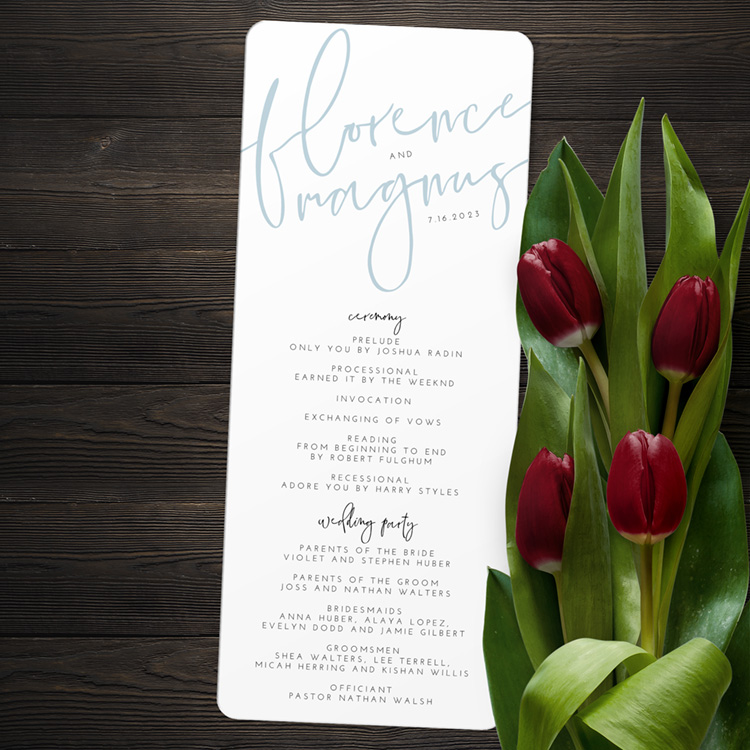 florence
AND
magnus
7.16.2023
ceremony
PRELUDE
ONLY YOU BY JOSHUA RADIN
PROCESSIONAL
EARNED IT BY THE WEEKND
INVOCATION
EXCHANGING OF VOWS
READING
FROM BEGINNING TO END
BY ROBERT FULGHUM
RECESSIONAL
ADORE YOU BY HARRY STYLES
wedding party
PARENTS OF THE BRIDE
VIOLET AND STEPHEN HUBER
PARENTS OF THE GROOM
JOSS AND NATHAN WALTERS
BRIDESMAIDS
ANNA HUBER, ALAYA LOPEZ,
EVELYN DODD AND JAMIE GILBERT
GROOMSMEN
SHEA WALTERS, LEE TERRELL,
MICAH HERRING AND KISHAN WILLIS
OFFICIANT
PASTOR NATHAN WALSH